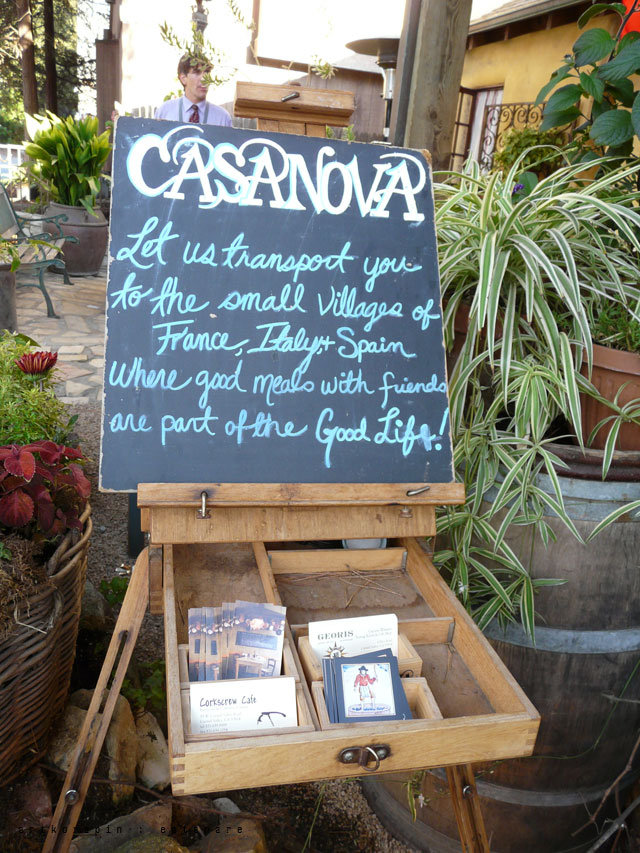 CASANOVA
Let us transport you
to the small villages of
France, Italy, + Spain
Where good meals with friends
are part of the Good Life!
GEORIS
Corkscrew Cafe